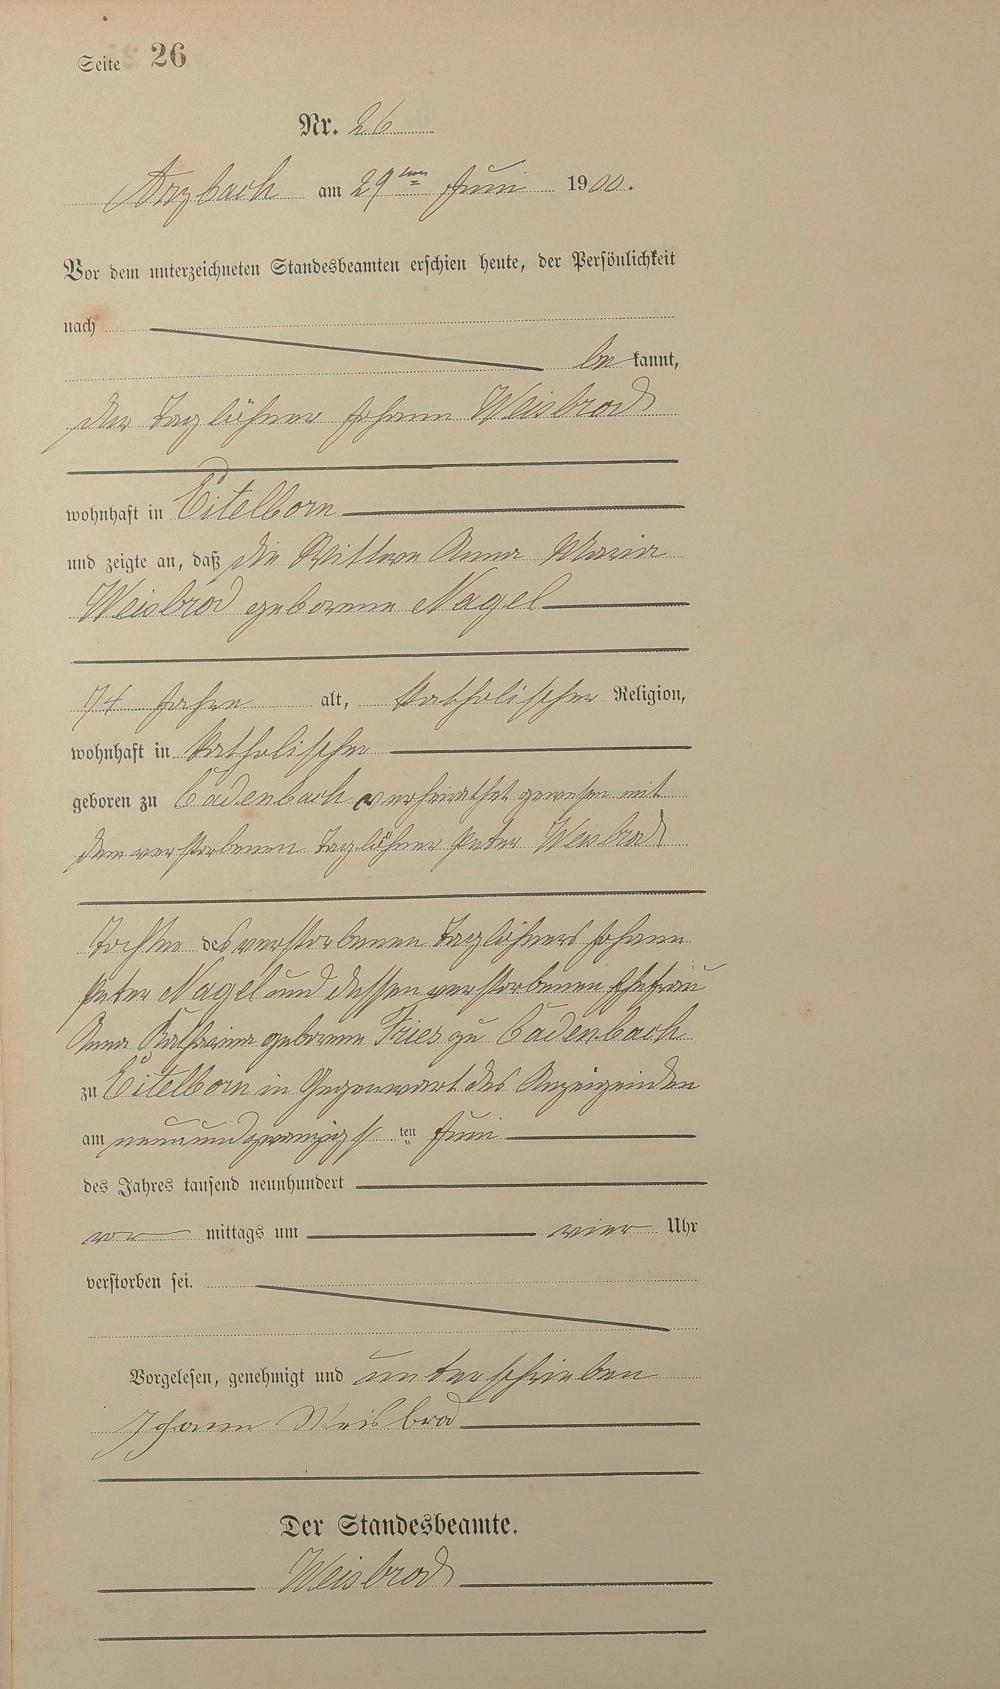 Seite 26
Nr. 26
Arzbach am 29ten Juni 1900.
Vor dem unterzeichneten Standesbeamten erschien heute, der Persönlichkeit
nach
bekannt,
der Taglöhner Johann Weisbrod
wohnhaft in Eitelborn
und zeigte an, daß die Wittwe Anna Maria
Weisbrod geborene Nagel
74 Jahre alt, katholischer Religion,
wohnhaft in katholischer
geboren zu Cadenbach verheirathet gewesen mit
dem verstorbenen Taglöhner Peter Weisbrod
Tochter des verstorbenen Taglöhners Johann
Peter Nagel und dessen verstorbenen Ehefrau
Anna Katharina geborene Fries zu Cadenbach
zu Eitelborn in Gegenwart des Anzeigenden
am neunundzwanzigsten Juni
des Jahres tausend neunhundert
vormittags um vier Uhr
verstorben sei.
Vorgelesen, genehmigt und unterschrieben
Johann Weisbrod
Der Standesbeamte.
Weisbrod